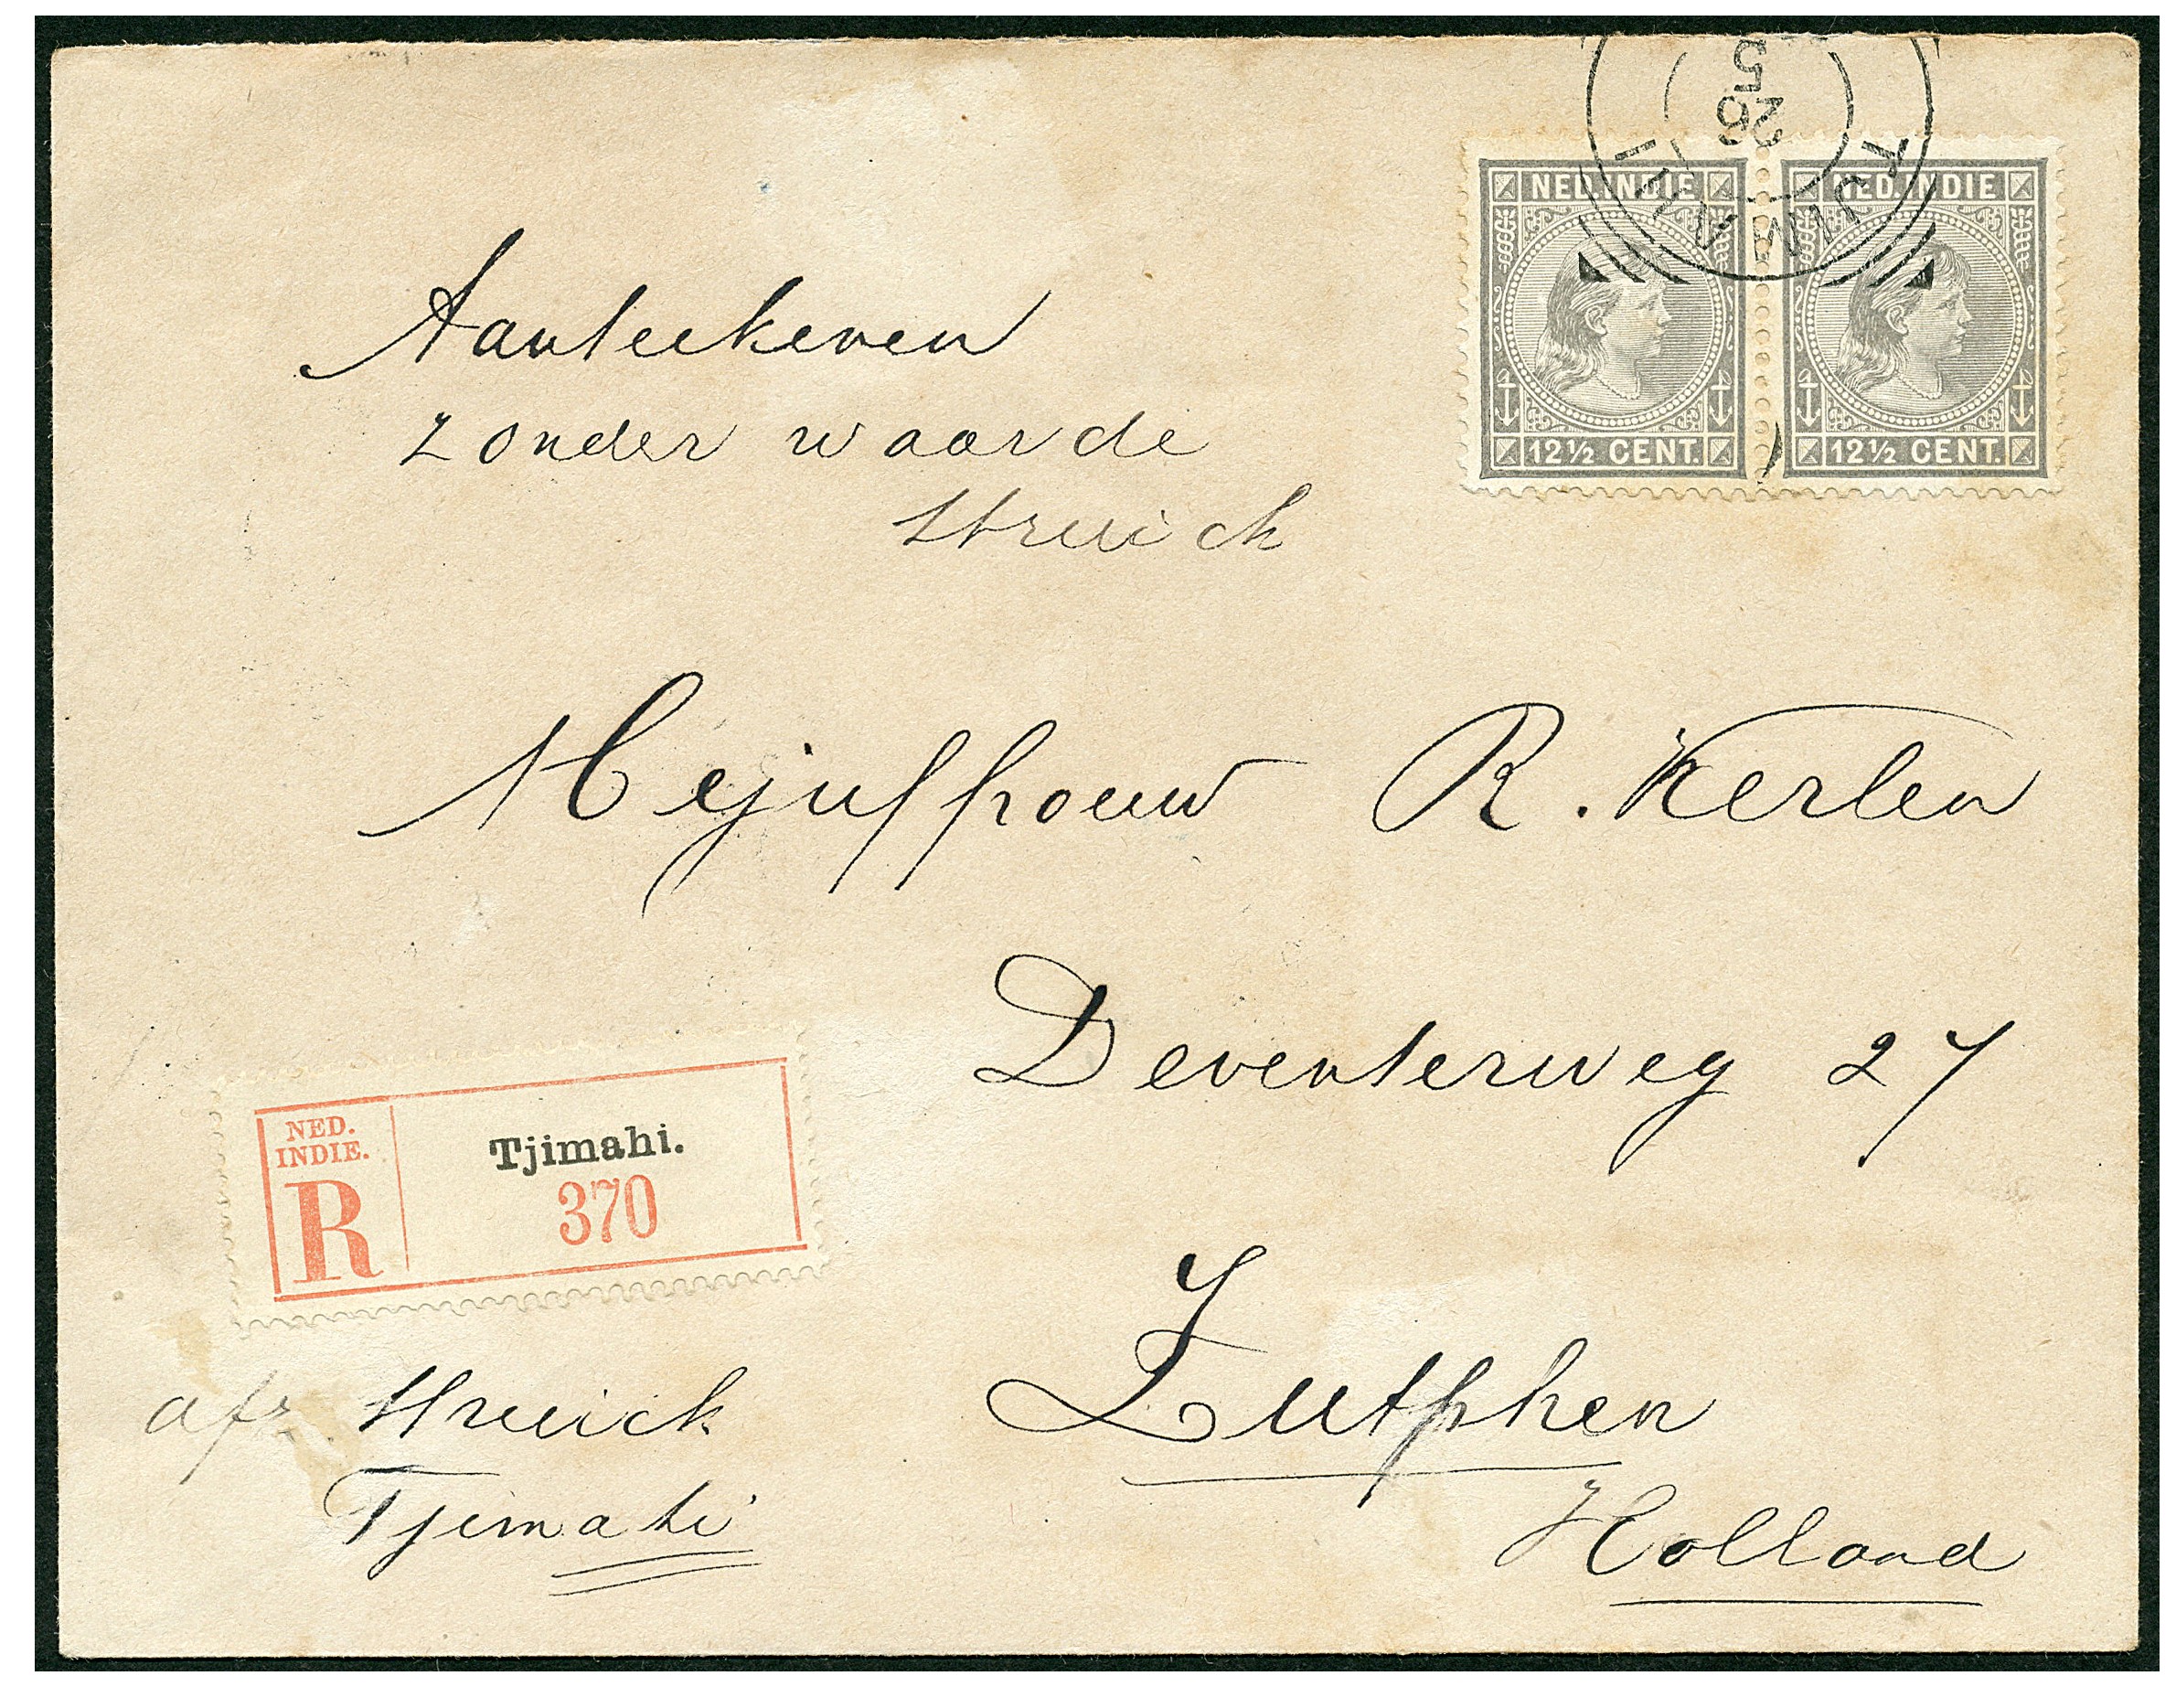 5
26
TJIMAHI
NED. INDIE NED. INDIE
12½ CENT. 12½ CENT.
Aanteekenen
zonder waarde
Struick
Mejuffrouw R. Kerlen
Deventerweg 27
Zutphen
Holland
NED.
INDIE.
R
Tjimahi.
370
afz. Struick
Tjimahi